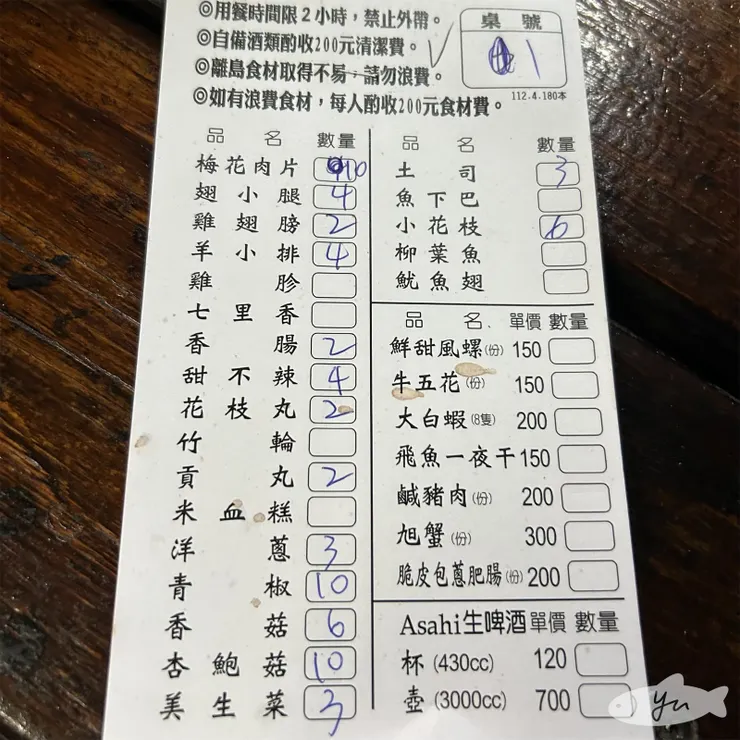 ◎用餐時間限2小時，禁止外帶。
◎自備酒類酌收200元清潔費。 ✓
◎離島食材取得不易，請勿浪費。
◎如有浪費食材，每人酌收200元食材費。
桌號
1
112.4.180本
品名 數量
梅花肉片 10
翅小腿 4
雞翅膀 2
羊小排 4
雞胗
七里香
香腸 2
甜不辣 4
花枝丸 2
竹輪
貢丸 2
米血糕
洋蔥 3
青椒 10
香菇 6
杏鮑菇 10
美生菜 3
品名 數量
土司 3
魚下巴
小花枝 6
柳葉魚
魷魚翅
品名 單價 數量
鮮甜風螺(份) 150
牛五花(份) 150
大白蝦(8隻) 200
飛魚一夜干 150
鹹豬肉(份) 200
旭蟹(份) 300
脆皮包蔥肥腸(份) 200
Asahi生啤酒 單價 數量
杯(430cc) 120
壺(3000cc) 700
yu